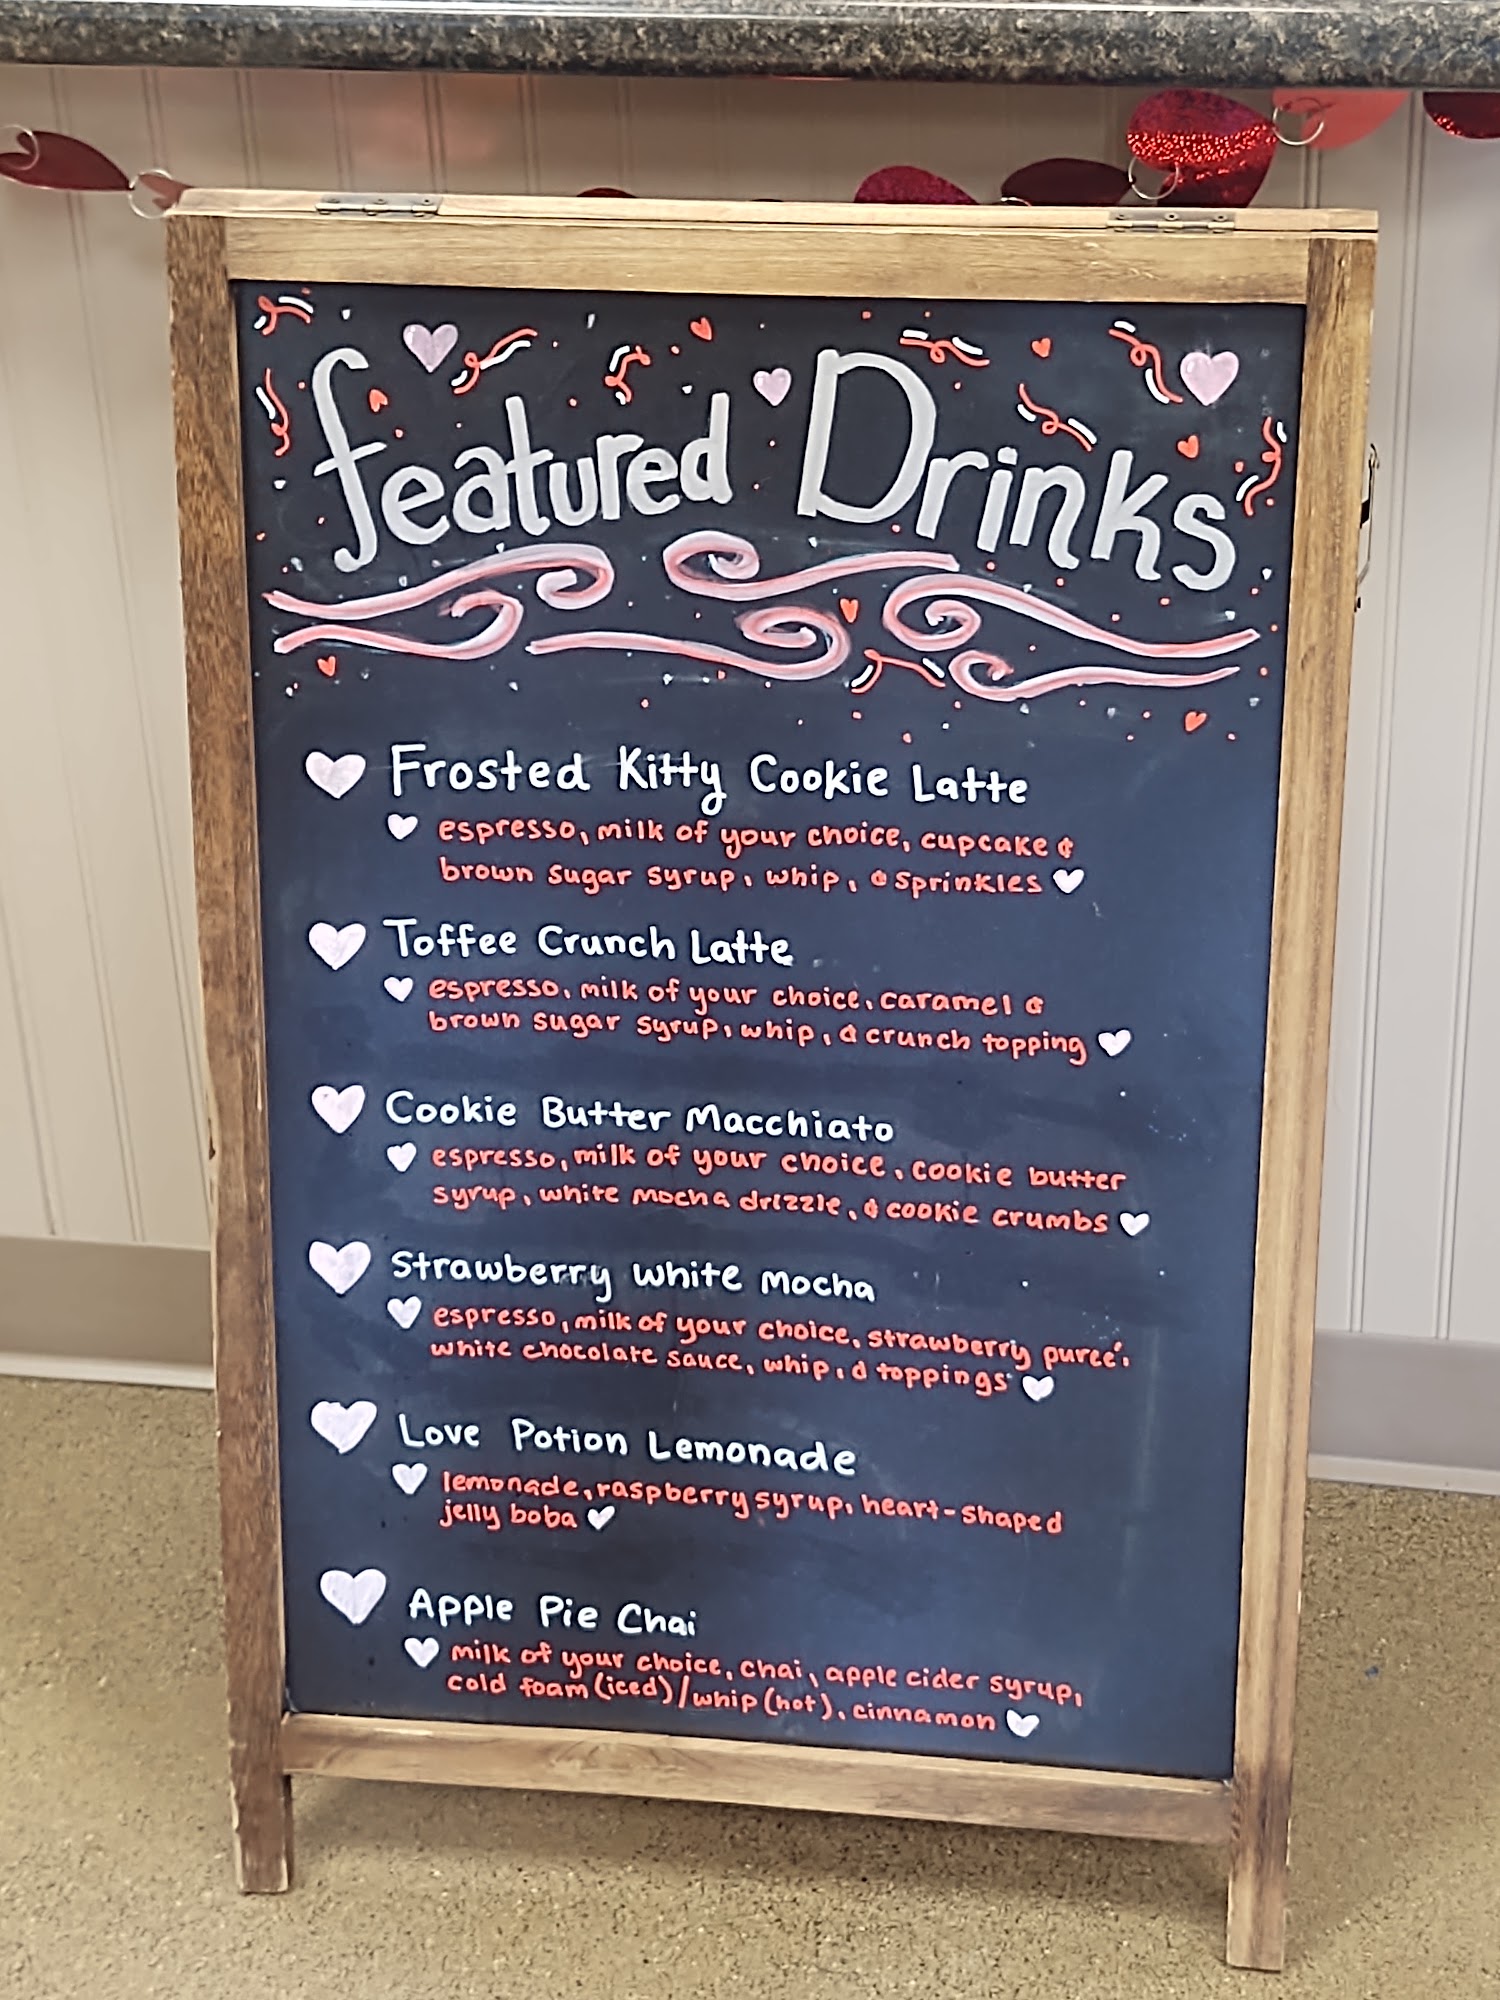 featured Drinks
Frosted Kitty Cookie Latte
espresso, milk of your choice, cupcake &
brown sugar syrup, whip, & sprinkles
Toffee Crunch Latte
espresso, milk of your choice, caramel &
brown sugar syrup, whip, & crunch topping
Cookie Butter Macchiato
espresso, milk of your choice, cookie butter
syrup, white mocha drizzle, & cookie crumbs
Strawberry White Mocha
espresso, milk of your choice, strawberry pureé,
white chocolate sauce, whip, & toppings
Love Potion Lemonade
lemonade, raspberry syrup, heart-shaped
jelly boba
Apple Pie Chai
milk of your choice, chai, apple cider syrup,
cold foam (iced)/whip (hot), cinnamon